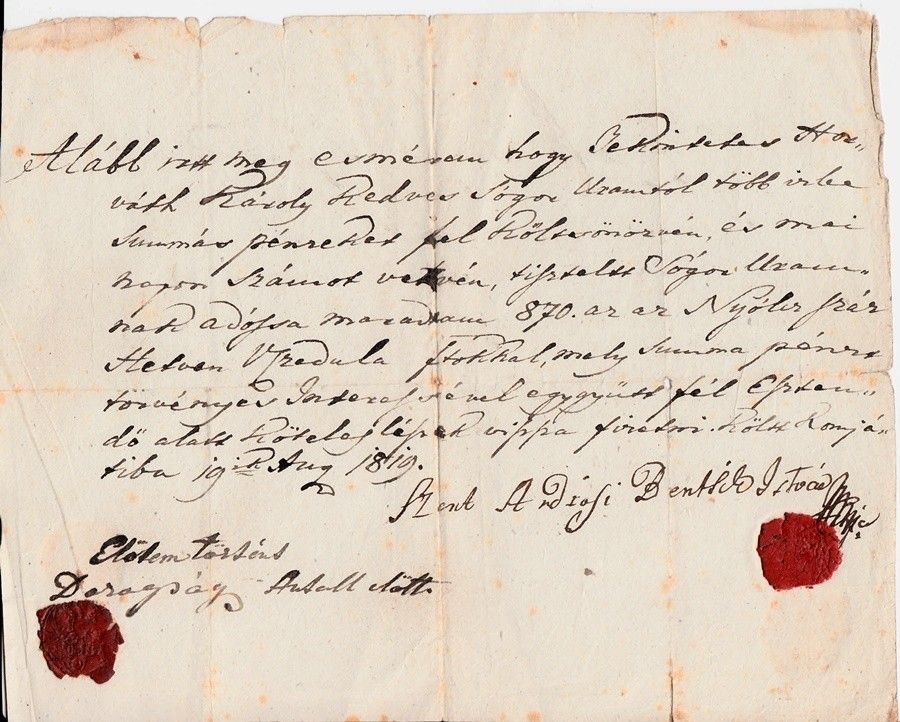 Alább irtt meg esmérem hogy Tekéntetes Hor-
váth Károly Kedves Sógor Uramtól több izbe
Summás pénzeket fel költsönözvén, és mai
napon számot vetvén, tisztelt Sógor Uram-
nak adóssa maradtam 870. az az Nyóltz száz
Hetven Tzedula ftokkal, mely Summa pénzt
törvényes Interessével egygyütt fél Eszten-
dő alatt Köteleslépek vissza fizetni. Költ Komjá-
tiba 19ik Aug 1819.
Szent Andrási Bentsik István
Előtem történt
Antall előtt